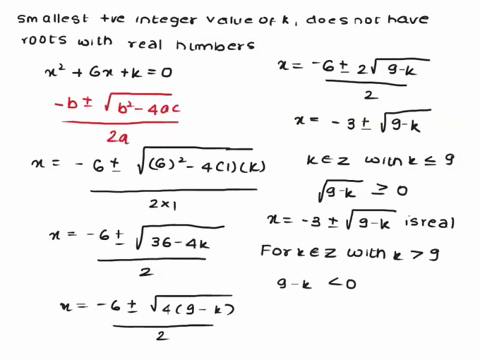 smallest +ve integer value of k, does not have
roots with real numbers
x² + 6x + k = 0
-b ± √(b² - 4ac) / 2a
x = -6 ± √((6)² - 4(1)(k)) / 2×1
x = -6 ± √(36 - 4k) / 2
x = -6 ± √(4(9 - k)) / 2
x = -6 ± 2√(9-k) / 2
x = -3 ± √(9-k)
k∈Z with k ≤ 9
√(9-k) ≥ 0
x = -3 ± √(9-k) is real
For k∈Z with k > 9
9-k < 0